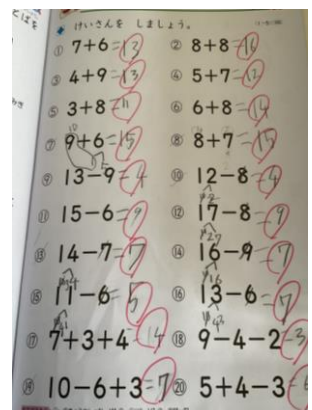 けいさんを しましょう。
① 7+6=13 ② 8+8=16
③ 4+9=13 ④ 5+7=12
⑤ 3+8=11 ⑥ 6+8=14
⑦ 9+6=15 ⑧ 8+7=15
⑨ 13-9=4 ⑩ 12-8=4
⑪ 15-6=9 ⑫ 17-8=9
⑬ 14-7=7 ⑭ 16-9=7
⑮ 11-6=5 ⑯ 13-6=7
⑰ 7+3+4=14 ⑱ 9-4-2=3
⑲ 10-6+3=7 ⑳ 5+4-3=6